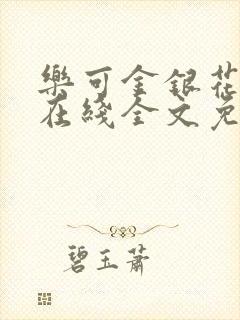 樂可金銀花
在綫全文免
碧玉蕭